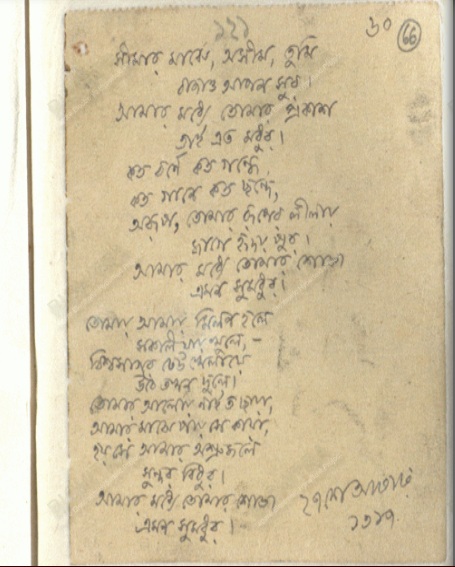 ১২১
৬০ 66
সীমার মাঝে, অসীম, তুমি
বাজাও আপন সুর।
আমার মধ্যে তোমার প্রকাশ
তাই এত মধুর।
কত বর্ণে কত গন্ধে,
কত গানে কত ছন্দে,
অরূপ, তোমার রূপের লীলায়
জাগে হৃদয় পুর।
আমার মধ্যে তোমার শোভা
এমন সুমধুর।
তোমায় আমায় মিলন হলে
সকলি যায় খুলে,-
বিশ্বসাগর ঢেউ খেলায়ে
উঠে তখন দুলে।
তোমার আলোয় নাই ত ছায়া,
আমার মাঝে পায় সে কায়া,
হয় সে আমার অশ্রুজলে
সুন্দর বিধুর।
আমার মধ্যে তোমার শোভা
এমন সুমধুর।
২৭শে আষাঢ়
১৩১৭